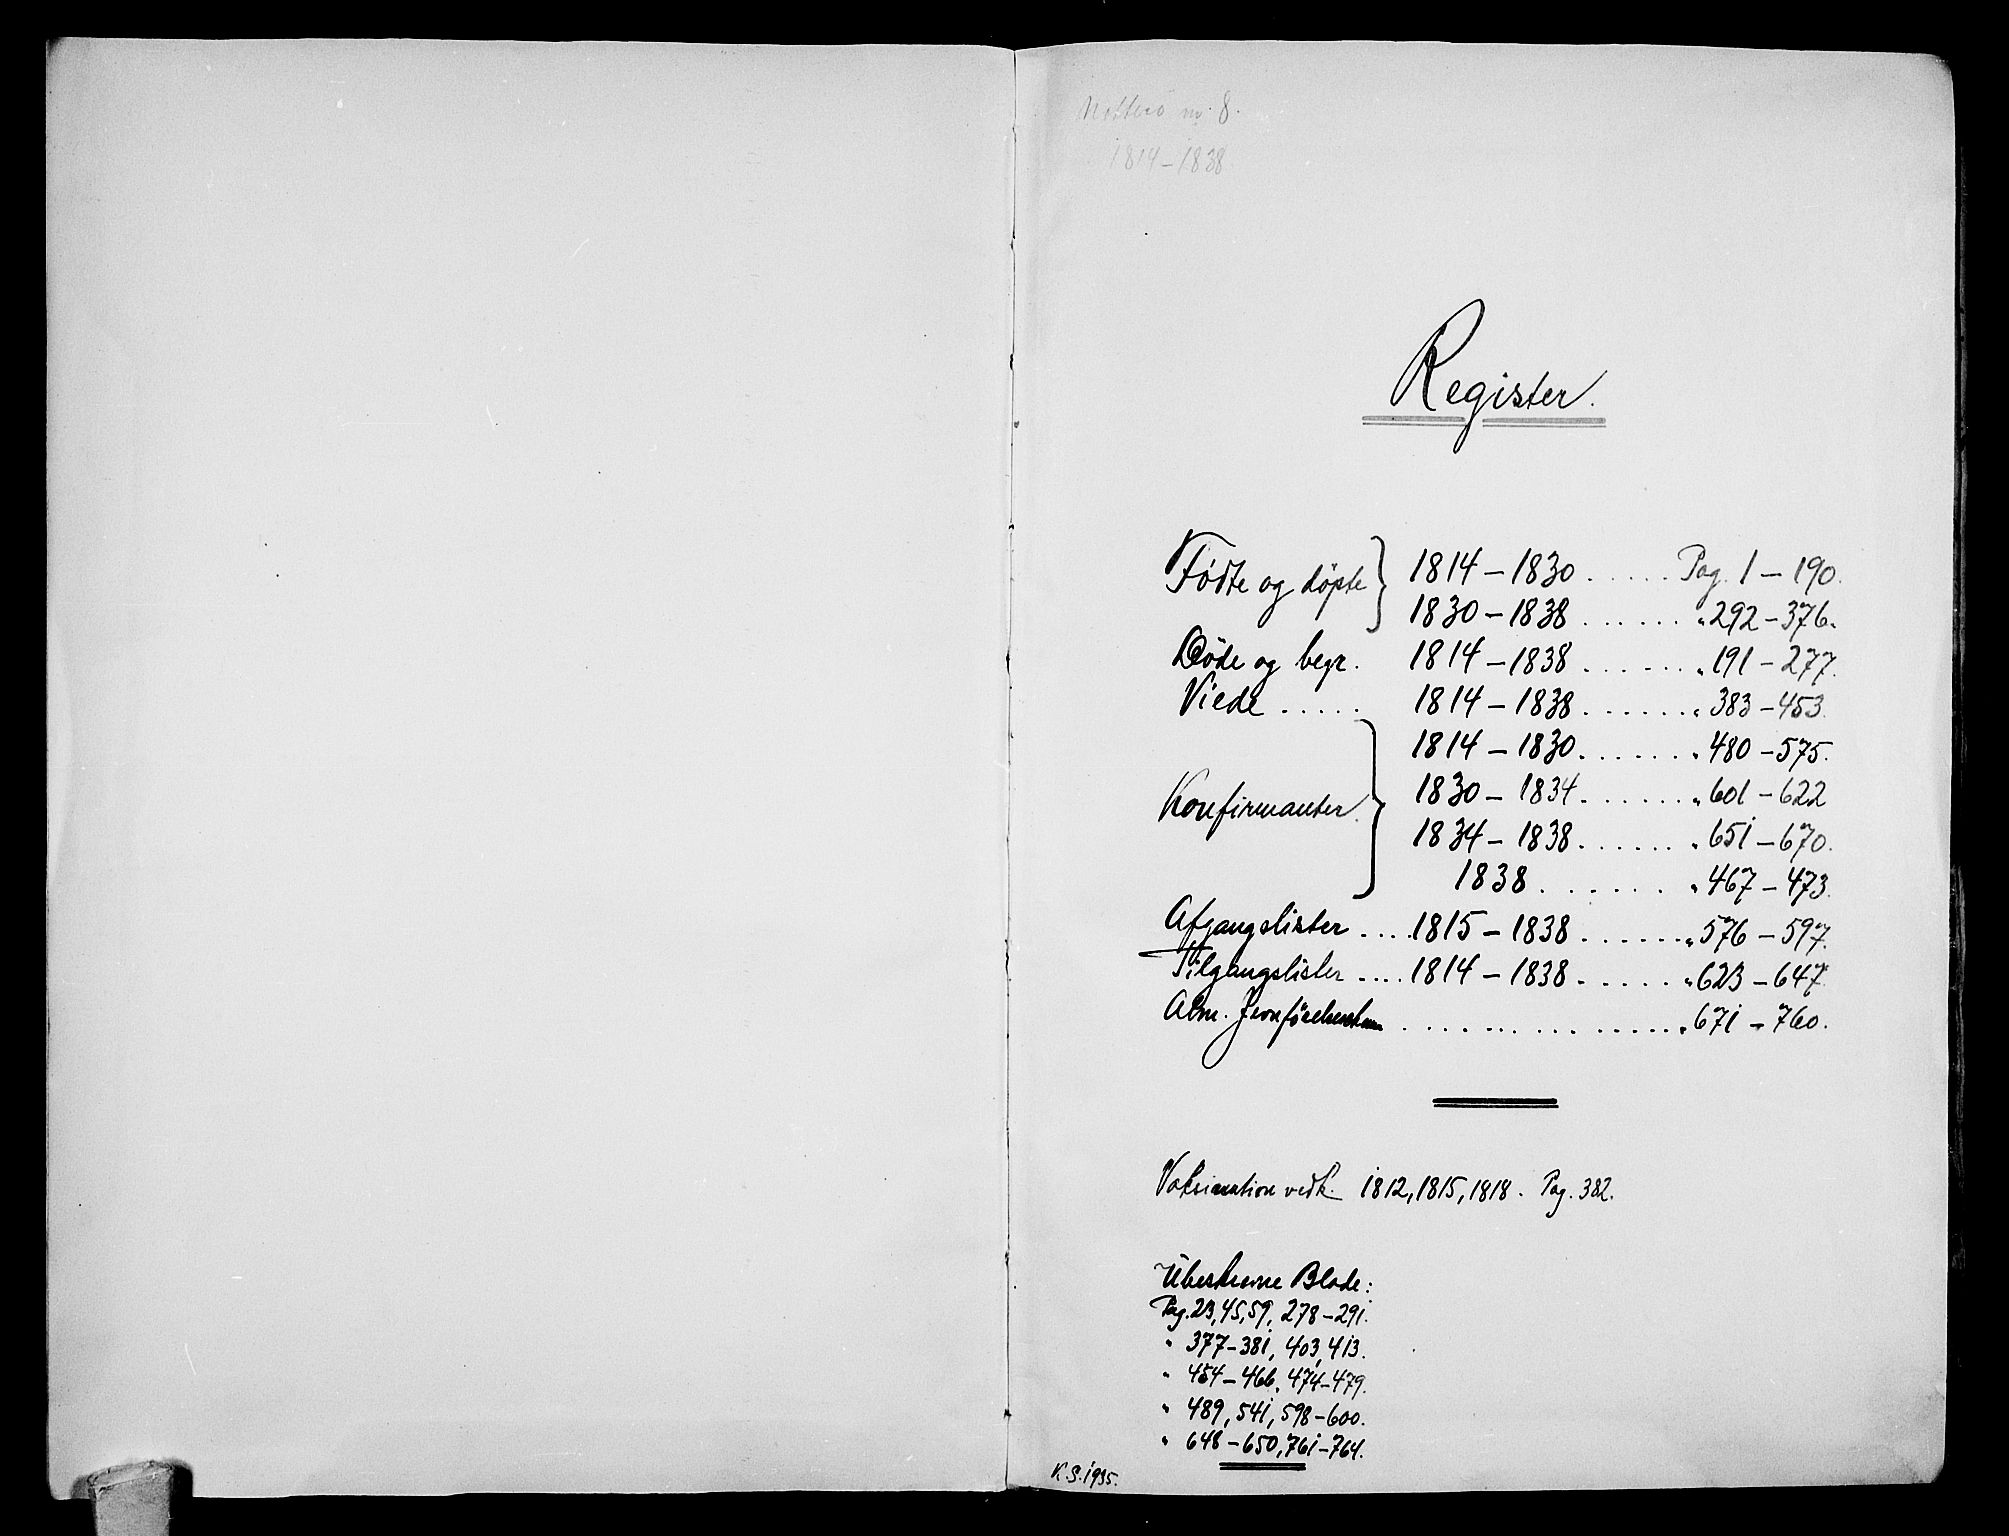 Nøtterø nr. 8.
1814-1838
Register.
Fødte og døpte } 1814-1830 ..... Pag. 1-190.
1830-1838 ...... " 292-376.
Døde og begr. 1814-1838 ...... " 191-277.
Viede ..... 1814-1838 ...... " 383-453.
Konfirmanter. } 1814-1830 ...... " 480-575.
1830-1834 ...... " 601-622
1834-1838 ...... " 651-670.
1838 ...... " 467-473.
Afgangslister .... 1815-1838 ...... " 576-597.
Tilgangslister .... 1814-1838 ...... " 623-647.
Alm. Jevnførelses ............... " 671-760.
Vaksination vedk. 1812, 1815, 1818. Pag. 382.
Ubeskrevne Blade:
Pag. 23, 45, 59, 278-291.
" 377-381, 403, 413.
" 454-466, 474-479.
" 489, 541, 598-600.
" 648-650, 761-764.
K.S. 1935.